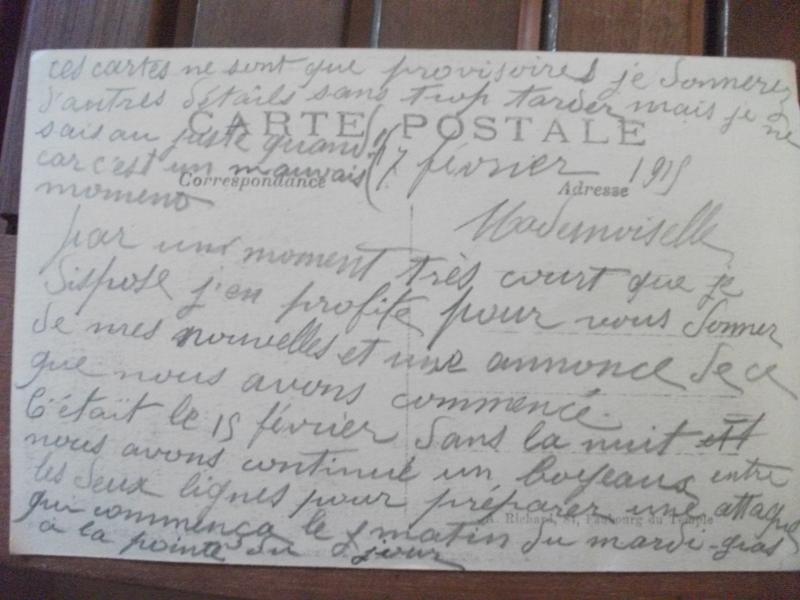 ces cartes ne sont que provisoires je donnerez
d'autres détails sans trop tarder mais je ne
sais au juste quand
car c'est un mauvais
moment
CARTE POSTALE
Correspondance
Adresse
17 février 1915
Mademoiselle
par un moment très court que je
dispose j'en profite pour vous donner
de mes nouvelles et une annonce de ce
que nous avons commencé.
C'était le 15 février dans la nuit
nous avons continué un boyeaux entre
les deux lignes pour préparer une attaque
qui commença le matin du mardi-gras
à la pointe du jour
A. Richard, 87, Faubourg du Temple